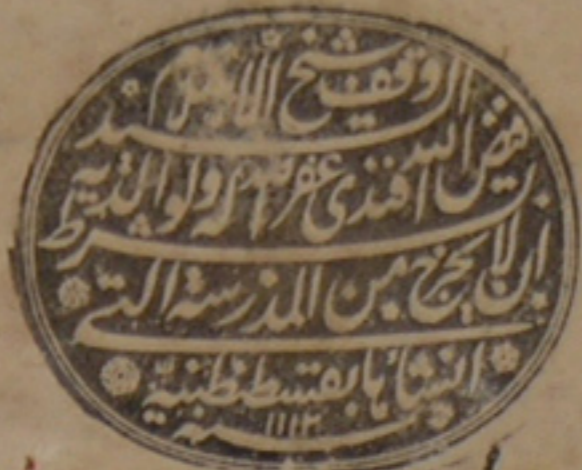 وقف شيخ الاسلام
السيد فيض الله افندى غفر الله له ولوالديه
بشرط ان لا يخرج من المدرسة التي
انشأها بقسطنطينية
سنه ١١١٣